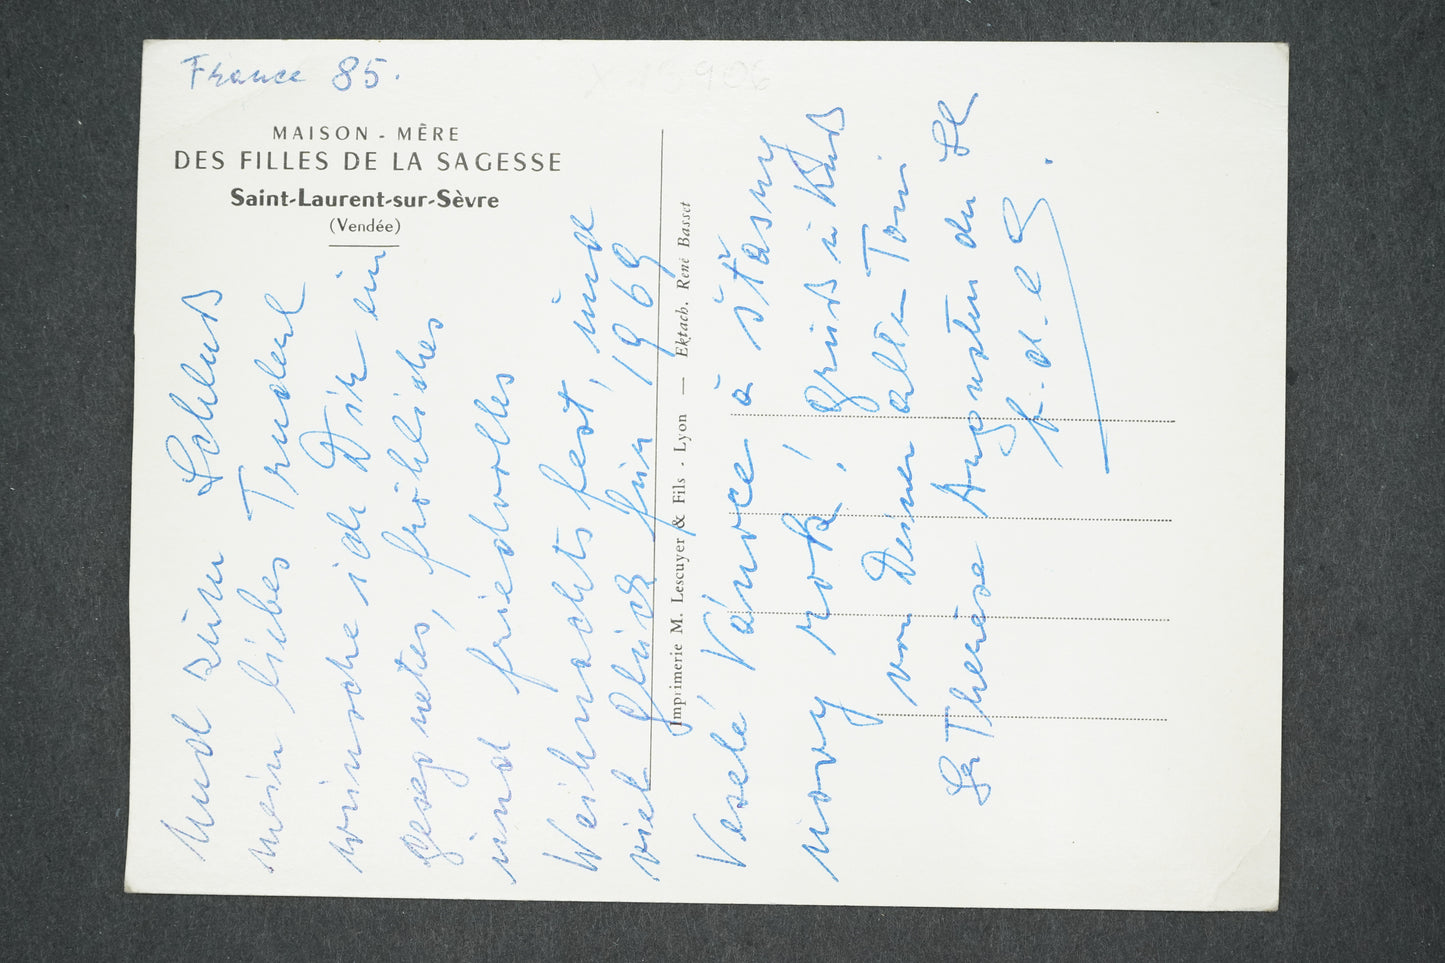 France 85.
MAISON - MÈRE
DES FILLES DE LA SAGESSE
Saint-Laurent-sur-Sèvre
(Vendée)
Imprimerie M. Lescuyer & Fils - Lyon — Ektach. René Basset
Und zum Schluß
mein liebes Truderl
wünsche ich Dir ein
gesegnetes, fröhliches
und friedvolles
Weihnachtsfest, und
viel Glück für 1969
Veselé Vánoce a šťasny
novy rok! Gruß u Kuß
von Deiner alten Toni
Sr Thérèse Augustin du
f. d. l. S.